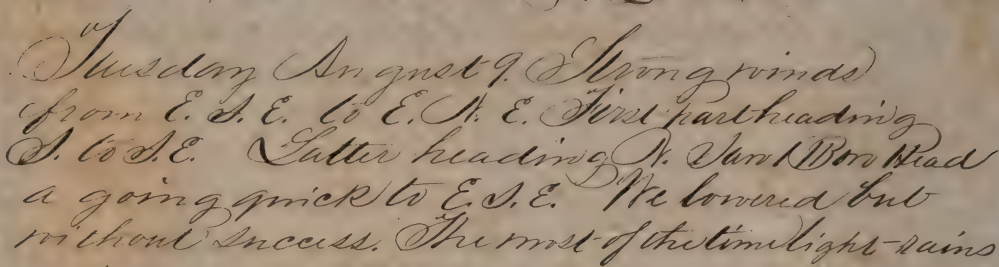 Tuesday August 9. Strong winds
from E. S. E. to E. N. E. First part heading
S. to S. E. Latter heading N. Saw 1 Bow Head
a going quick to E. S. E. We lowered but
without success. The most of the time light rains